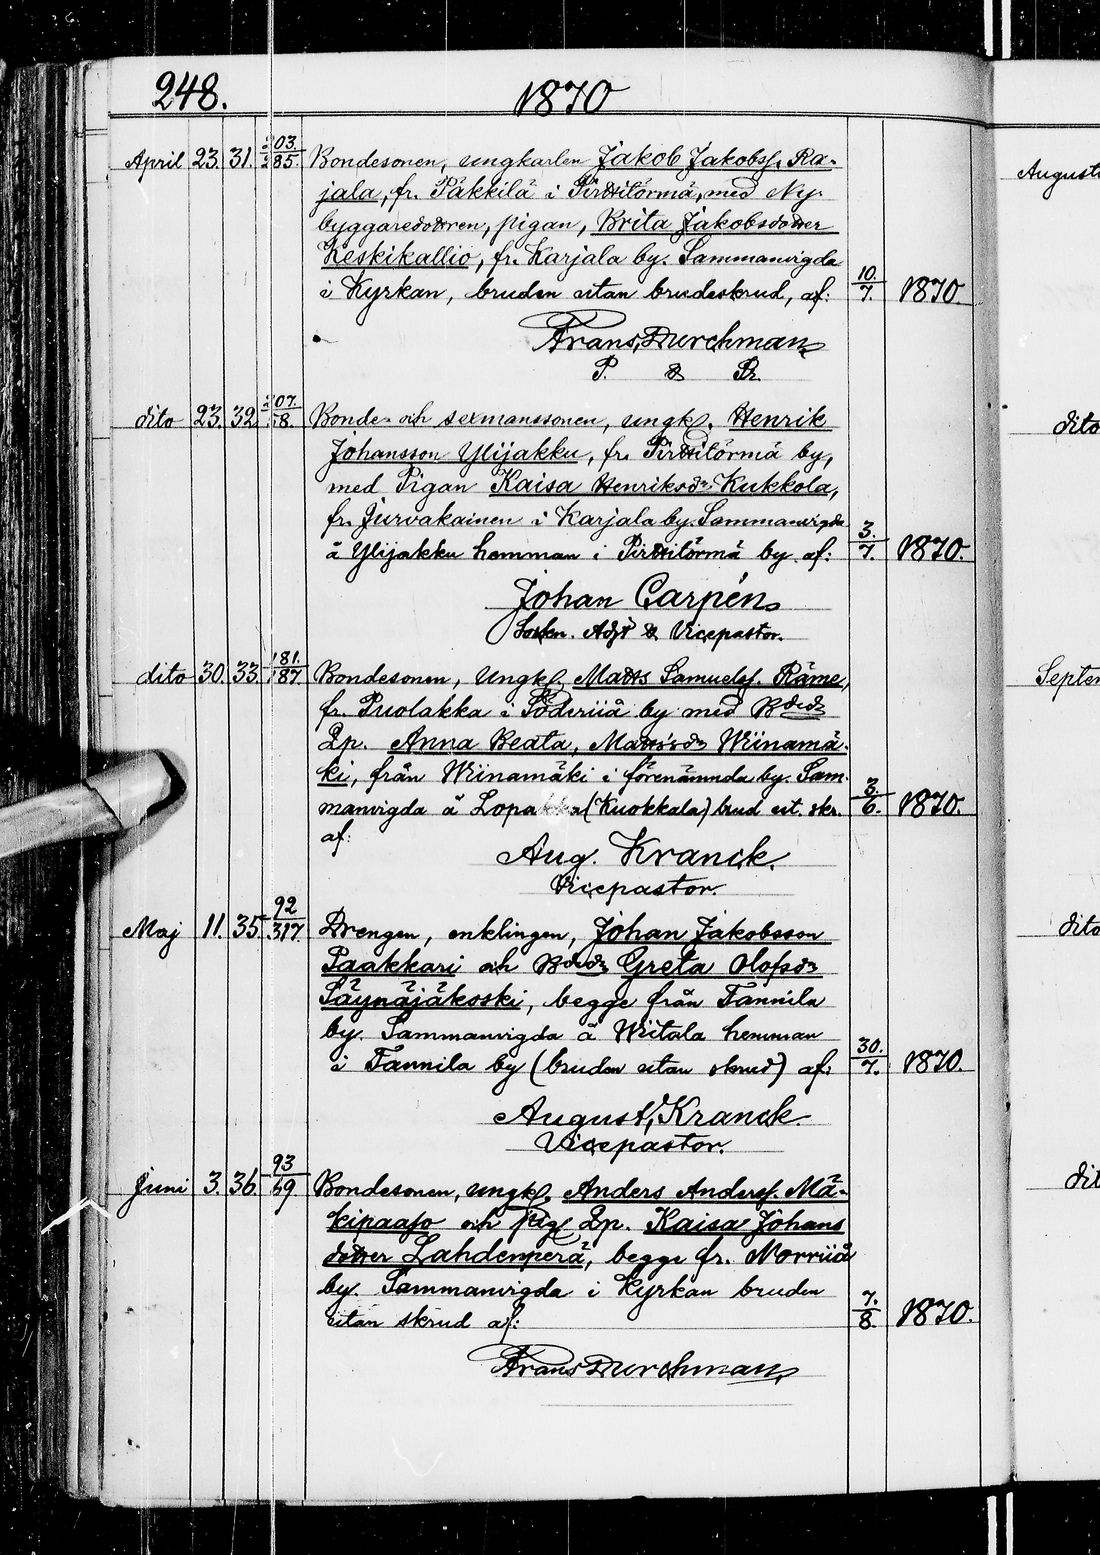 248. 1870
April 23. 31. 203. 285. Bondesonen, ungkarlen Jakob Jakobss. Ra-
jala, fr. Päkkilä i Pirttitörmä, med Ny-
byggaredottren, pigan, Brita Jakobsdotter
Keskikallio, fr. Karjala by. Sammanvigda
i Kyrkan, bruden utan brudeskrud, af: 10. 7. 1870
Frans Durchman
P. & Pr.
dito 23. 32. 207. 58. Bonde- och sexmanssonen, ungk. Henrik
Johansson Ylijakku, fr. Pirttitörmä by,
med Pigan Kaisa Henriksdr Kukkola,
fr. Jurvakainen i Karjala by. Sammanvigda
å Ylijakku hemman i Pirttitörmä by af: 3. 7. 1870.
Johan Carpén
Socken. Adjt & Vicepastor.
dito 30. 33. 181. 187. Bondesonen, Ungk. Matts Samuelss. Räme,
fr. Puolakka i Söderiiå by med Bdedr
Qp. Anna Beata, Mattsdr Wiinamä-
ki, från Wiinamäki i förenämnda by. Sam-
manvigda å Lopakka (Kuokkala) brud ut. skr. 3. 6. 1870.
af:
Aug. Kranck.
Vicepastor.
Maj 11. 35. 92 317. Drengen, enklingen, Johan Jakobsson
Paakkari och Bdedr Greta Olofsdr
Säynäjäkoski, begge från Tannila
by. Sammanvigda å Wiitala hemman
i Tannila by (bruden utan skrud) af: 30. 7. 1870.
August Kranck.
Vicepastor.
Juni 3. 36. 93 59. Bondesonen, ungk. Anders Anderss. Mä-
kipaaso och pig. Qp. Kaisa Johans
dotter Lahdenperä, begge fr. Norriiå
by. Sammanvigda i Kyrkan bruden
utan skrud af: 7. 8. 1870.
Frans Durchman
Augusti
dito
Septem
dito
dit